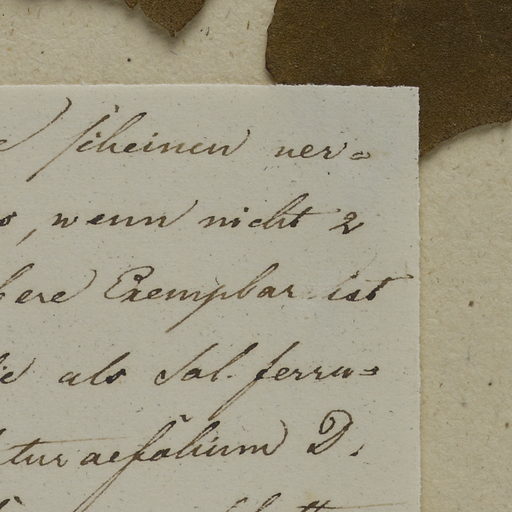 scheinen ver=
, wenn nicht 2
bere Exemplar ist
die als Sal. ferru=
turaefolium D.